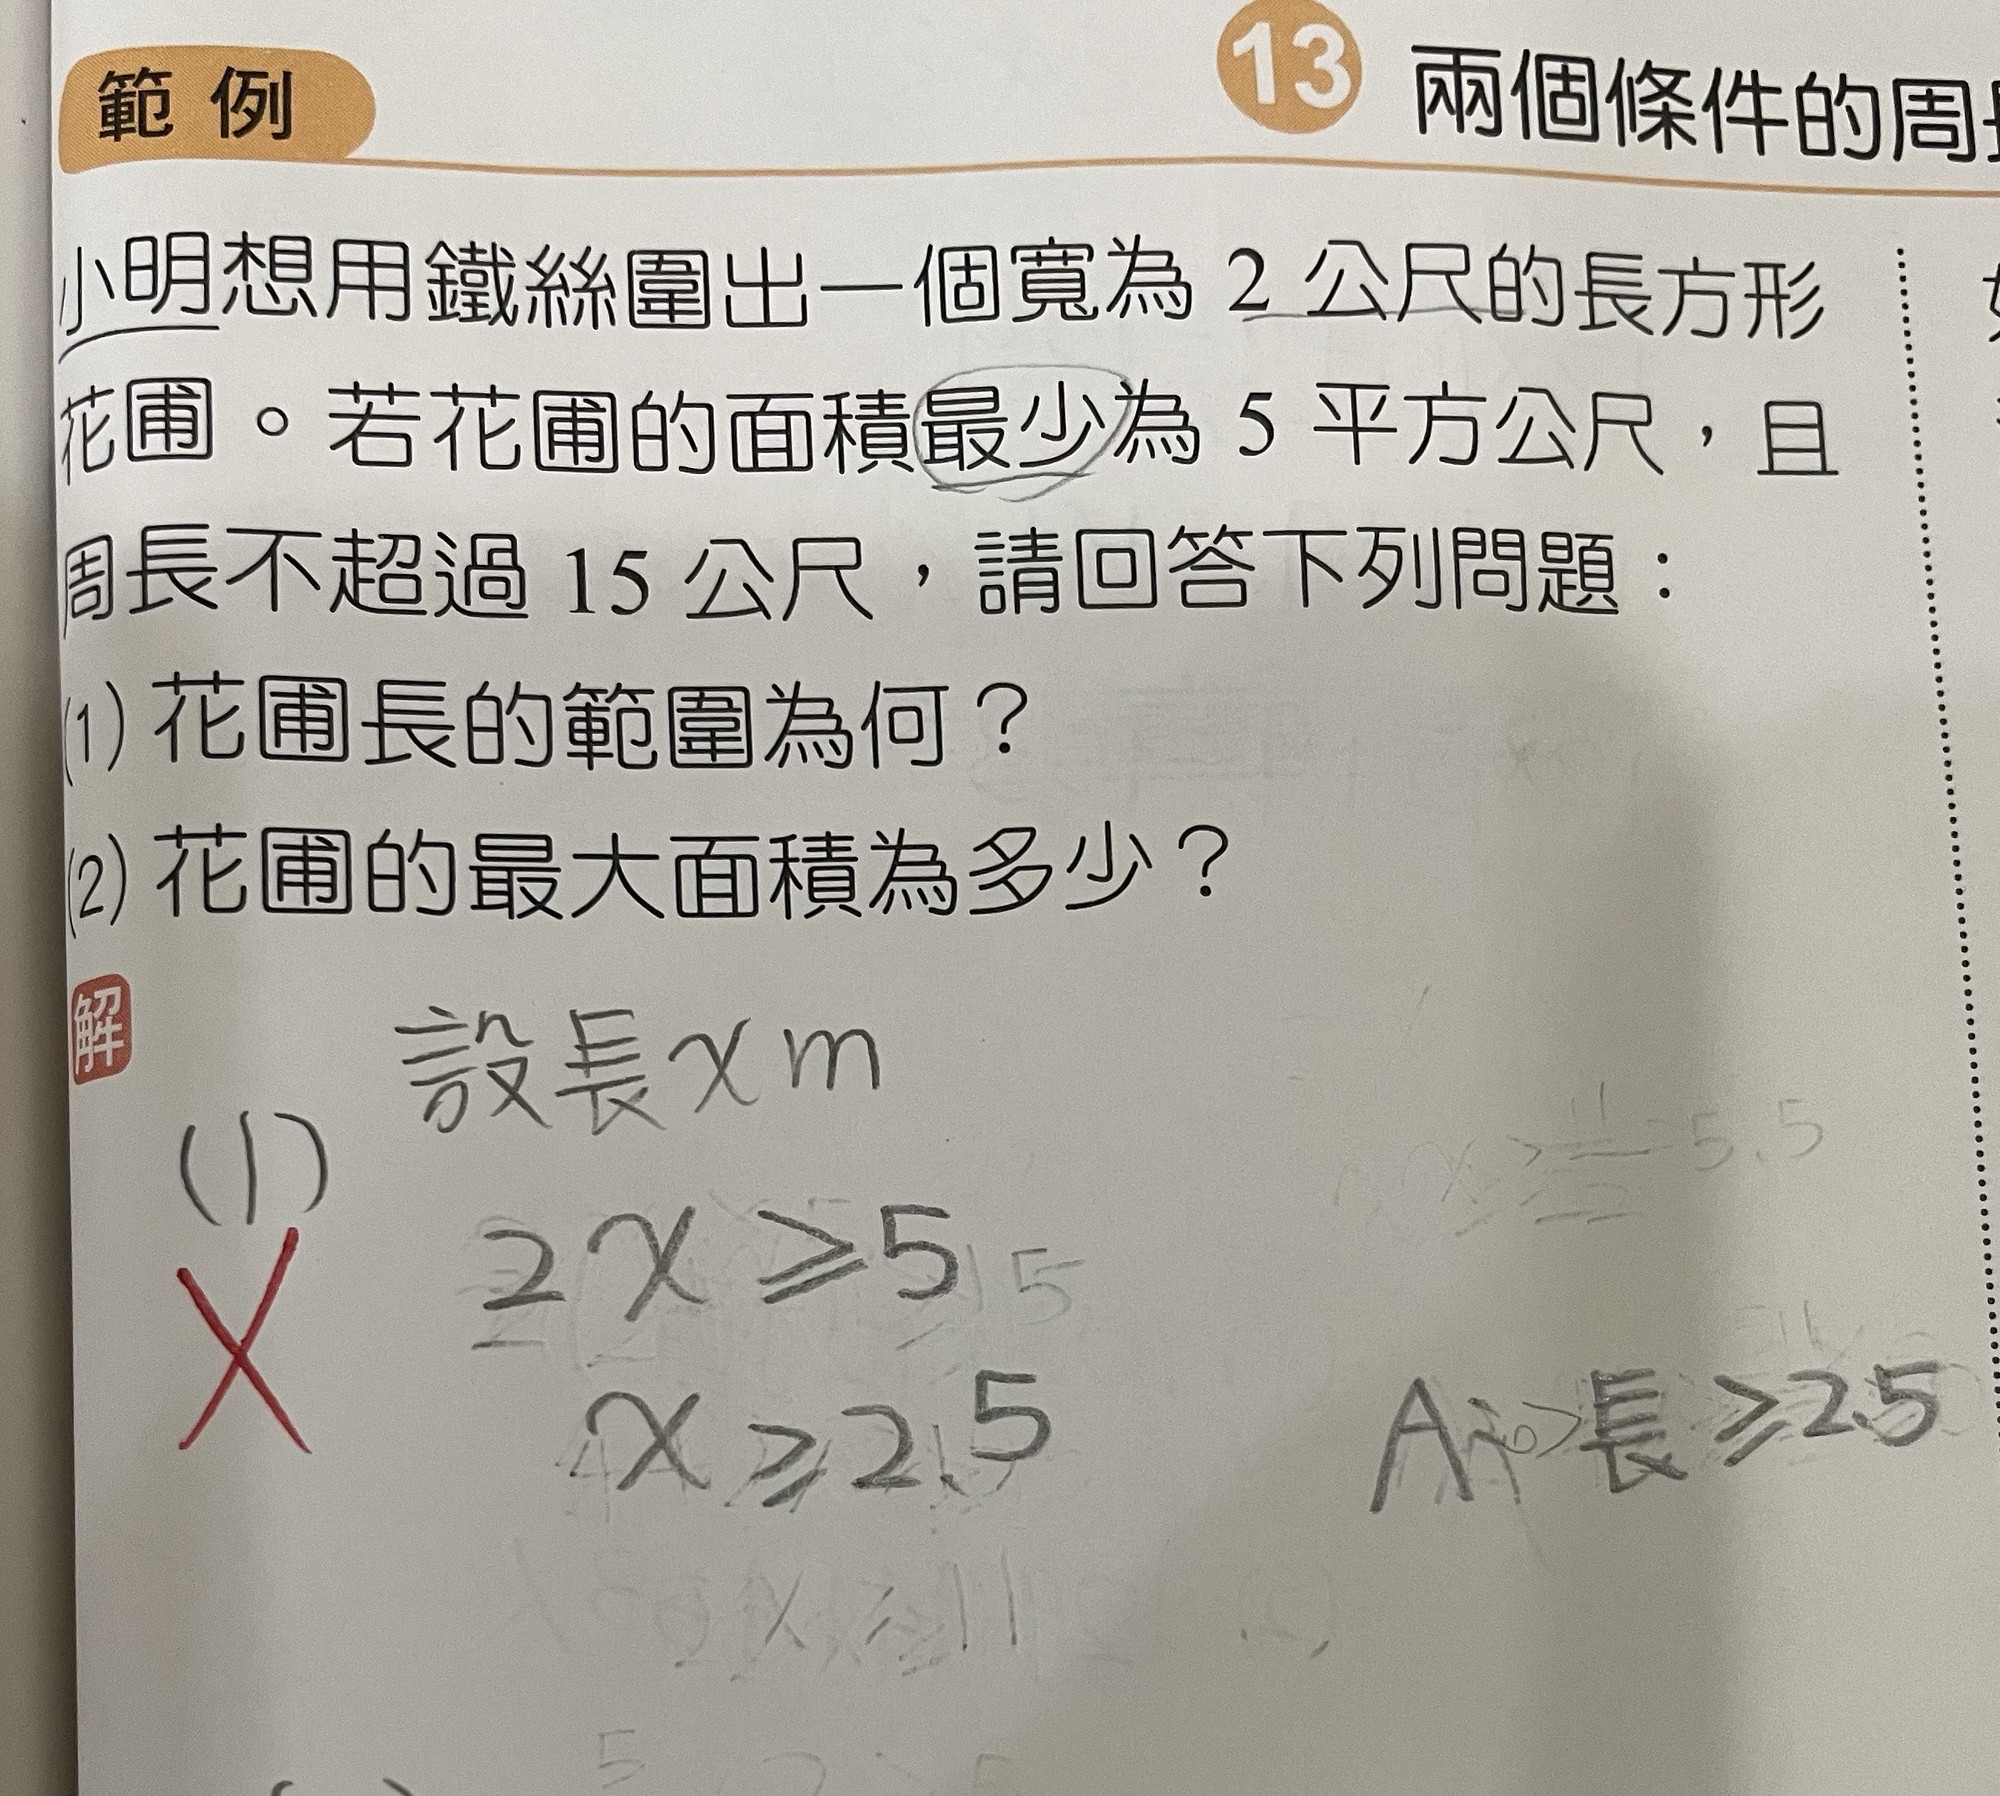 範例
13 兩個條件的周長
小明想用鐵絲圍出一個寬為 2 公尺的長方形
花圃。若花圃的面積最少為 5 平方公尺，且
周長不超過 15 公尺，請回答下列問題：
(1) 花圃長的範圍為何？
(2) 花圃的最大面積為多少？
解
設長 x m
(1)
2x ≥ 5
x ≥ 2.5
A: 長 ≥ 2.5